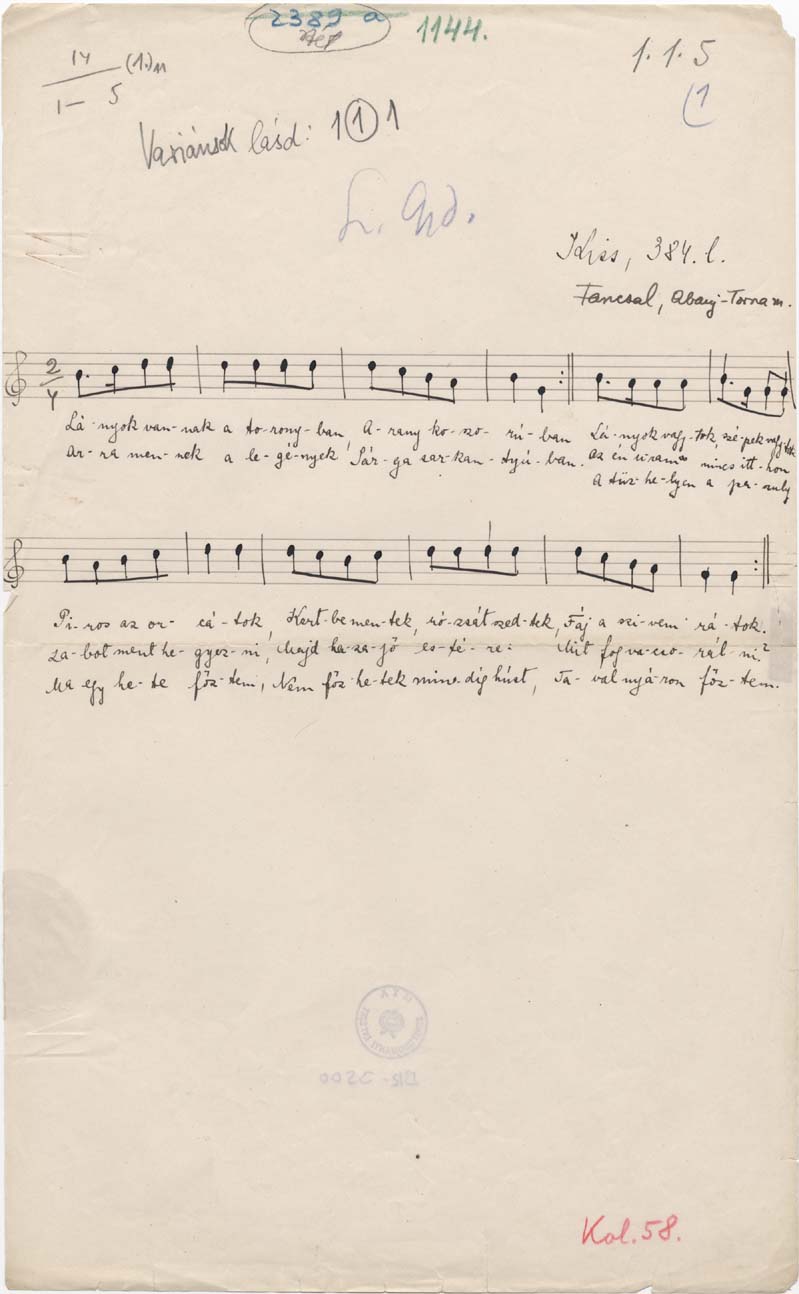 2389 a
1144.
1. 1. 5
14 (1.)11
1— 5
(1
Variánsok lásd: 1 1 1
Kiss, 384. l.
Fancsal, Abauj-Torna m.
2/4
Lá-nyok van-nak a to-rony-ban, A-rany ko-szo-rú-ban Lá-nyok vagy-tok, szé-pek vagy-tok
Ar-ra men-nek a le-gé-nyek Sár-ga sar-kan-tyú-ban. Az én uram nincs itt-hon
A tűz-he-lyen a pa-szuly
Pi-ros az or-cá-tok, Kert-be men-tek, ró-zsát szed-tek, Fáj a szi-vem rá-tok.
Za-bot ment he-gyez-ni, Majd ha-za-jő es-té-re: Mit fog va-cso-rál-ni?
Ma egy he-te főz-tem, Nem főz-he-tek min-dig húst, Ta-val nyá-ron főz-tem.
Kol. 58.